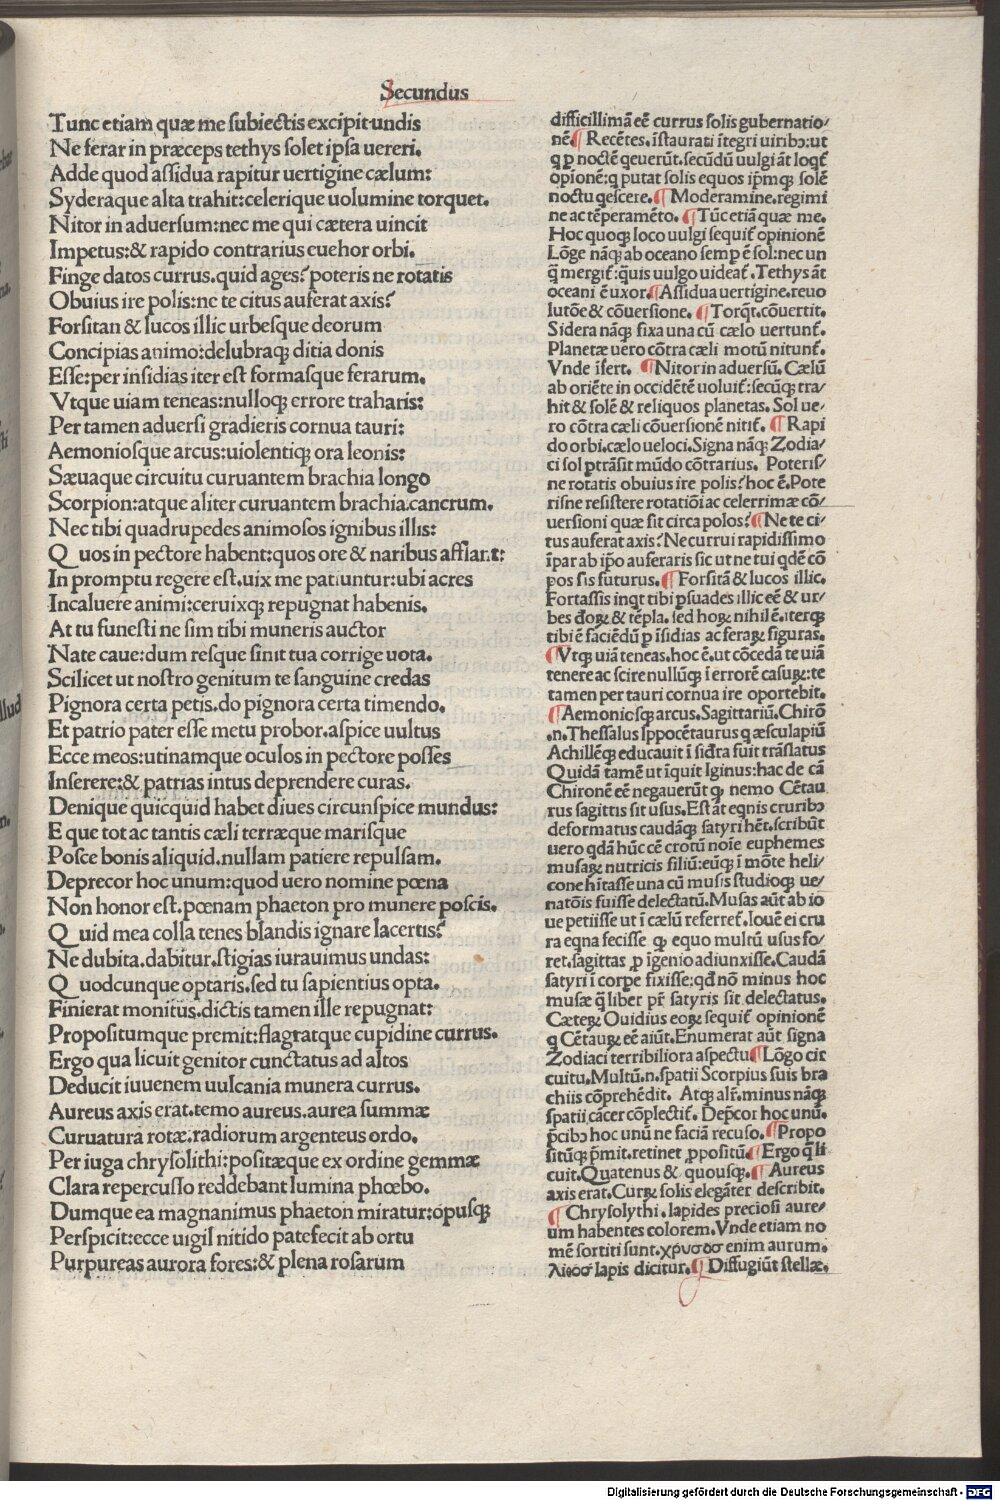 Secundus
Tunc etiam quæ me subiectis excipit undis
Ne ferar in præceps tethys solet ipsa uereri.
Adde quod assidua rapitur uertigine cælum:
Syderaque alta trahit:celerique uolumine torquet.
Nitor in aduersum:nec me qui cætera uincit
Impetus:& rapido contrarius euehor orbi.
Finge datos currus.quid ages? poteris ne rotatis
Obuius ire polis:ne te citus auferat axis?
Forsitan & lucos illic urbesque deorum
Concipias animo:delubraqꝫ ditia donis
Esse:per insidias iter est formasque ferarum.
Vtque uiam teneas:nulloqꝫ errore traharis:
Per tamen aduersi gradieris cornua tauri:
Aemoniosque arcus:uiolentiqꝫ ora leonis:
Sæuaque circuitu curuantem brachia longo
Scorpion:atque aliter curuantem brachia.cancrum.
Nec tibi quadrupedes animosos ignibus illis:
Q uos in pectore habent:quos ore & naribus afflant:
In promptu regere est.uix me patiuntur:ubi acres
Incaluere animi:ceruixqꝫ repugnat habenis.
At tu funesti ne sim tibi muneris auctor
Nate caue:dum resque sinit tua corrige uota.
Scilicet ut nostro genitum te sanguine credas
Pignora certa petis.do pignora certa timendo.
Et patrio pater esse metu probor.aspice uultus
Ecce meos:utinamque oculos in pectore posses
Inserere:& patrias intus deprendere curas.
Denique quicquid habet diues circunspice mundus:
E que tot ac tantis cæli terræque marisque
Posce bonis aliquid.nullam patiere repulsam.
Deprecor hoc unum:quod uero nomine pœna
Non honor est.pœnam phaeton pro munere poscis.
Q uid mea colla tenes blandis ignare lacertis?
Ne dubita.dabitur.stigias iurauimus undas:
Q uodcunque optaris.sed tu sapientius opta.
Finierat monitus.dictis tamen ille repugnat:
Propositumque premit:flagratque cupidine currus.
Ergo qua licuit genitor cunctatus ad altos
Deducit iuuenem uulcania munera currus.
Aureus axis erat.temo aureus.aurea summæ
Curuatura rotæ:radiorum argenteus ordo.
Per iuga chrysolithi:positæque ex ordine gemmæ
Clara repercusso reddebant lumina phœbo.
Dumque ea magnanimus phaeton miratur:opusqꝫ
Perspicit:ecce uigil nitido patefecit ab ortu
Purpureas aurora fores:& plena rosarum
difficillimā eē currus solis gubernatio/
nē.¶ Recētes.īstaurati ītegri uiribꝰ:ut
q ꝑ noctē q̇euerūt.secūdū uulgi āt loq̄t
opionē:q putat solis equos ip̄mqꝫ solē
noctu q̇escere.¶ Moderamine.regimi
ne ac tēperamēto. ¶ Tūc etiā quæ me.
Hoc quoqꝫ loco uulgi sequit̄ opinionē
Lōge nāqꝫ ab oceano semp ē sol:nec un
q̄ mergit̄:q̄uis uulgo uideat̄.Tethys āt
oceani ē uxor.¶Assidua uertigine.reuo
lutōe & cōuersione. ¶ Torq̄t.cōuertit.
Sidera nāqꝫ fixa una cū cælo uertunt̄.
Planetæ uero cōtra cæli motū nitunt̄.
Vnde īfert. ¶Nitor in aduersū.Cælū
ab oriēte in occidētē uoluit̄:secūqꝫ tra/
hit & solē & reliquos planetas.Sol ue/
ro cōtra cæli cōuersionē nitit̄. ¶ Rapi
do orbi.cælo ueloci.Signa nāqꝫ Zodia/
ci sol ꝑtrāsit mūdo cōtrarius. Poteris/
ne rotatis obuius ire polis?hoc ē.Pote
risne resistere rotatiōi ac celerrimæ cō/
uersioni quæ sit circa polos?¶Ne te ci/
tus auferat axis?Ne currui rapidissimo
īpar ab ip̄o auferaris sic ut ne tui q̇dē cō
pos sis futurus.¶Forsitā & lucos illic.
Fortassis inq̇t tibi ꝑsuades illic eē & ur/
bes đoꝝ & tēpla. sed hoꝝ nihil ē.iterqꝫ
tibi ē faciēdū ꝑ īsidias ac feraꝝ figuras.
¶Vtqꝫ uiā teneas.hoc ē.ut cōcedā te uiā
tenere ac scire nullūqꝫ ī errorē casuꝝ:te
tamen per tauri cornua ire oportebit.
¶Aemoniosqꝫ arcus.Sagittariū.Chirō
.n.Thessalus īppocētaurus q æsculapiū
Achillēqꝫ educauit ī siđra fuit trāslatus
Quidā tamē ut īquit Iginus:hac de cā
Chironē eē negauerūt qꝫ nemo Cētau
rus sagittis sit usus.Est āt eq̇nis cruribꝰ
deformatus caudāqꝫ satyri hēt.scribūt
uero q̇dā hūc eē crotū noīe euphemes
musaꝝ nutricis filiū:eūqꝫ ī mōte heli/
cone hītasse una cū musis studioqꝫ ue/
natōis fuisse delectatū.Musas aūt ab io
ue petiisse ut ī cælū referret̄.Iouē ei cru
ra eq̇na fecisse qꝫ equo multū usus fo/
ret.sagittas ꝑ igenio adiunxisse.Caudā
satyri ī corpe fixisse:qđ nō minus hoc
musæ q̄ liber pr̄ satyris sit delectatus.
Cæteꝝ Ouidius eoꝝ sequit̄ opinionē
q Cētauꝝ eē aiūt.Enumerat aūt signa
Zodiaci terribiliora aspectu¶Lōgo cir
cuitu.Multū.n.spatii Scorpius suis bra
chiis cōprehēdit. Atqꝫ alr̄.minus nāqꝫ
spatii cācer cōplectit̄. Dep̄cor hoc unū.
p̄cibꝰ hoc unū ne faciā recuso.¶Propo
sitūqꝫ p̄mit.retinet ꝓpositū.¶Ergo q̄ li
cuit.Quatenus & quousqꝫ.¶Aureus
axis erat.Curꝝ solis elegāter describit.
¶Chrysolythi.lapides preciosi aure/
um habentes colorem.Vnde etiam no
mē sortiti sunt.χρυσοσ enim aurum.
λιθοσ lapis dicitur.¶ Diffugiūt stellæ.
Digitalisierung gefördert durch die Deutsche Forschungsgemeinschaft - DFG